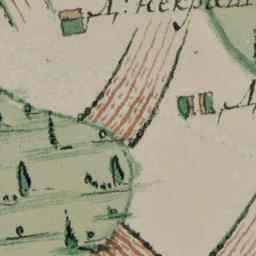 Д: некраш
Д